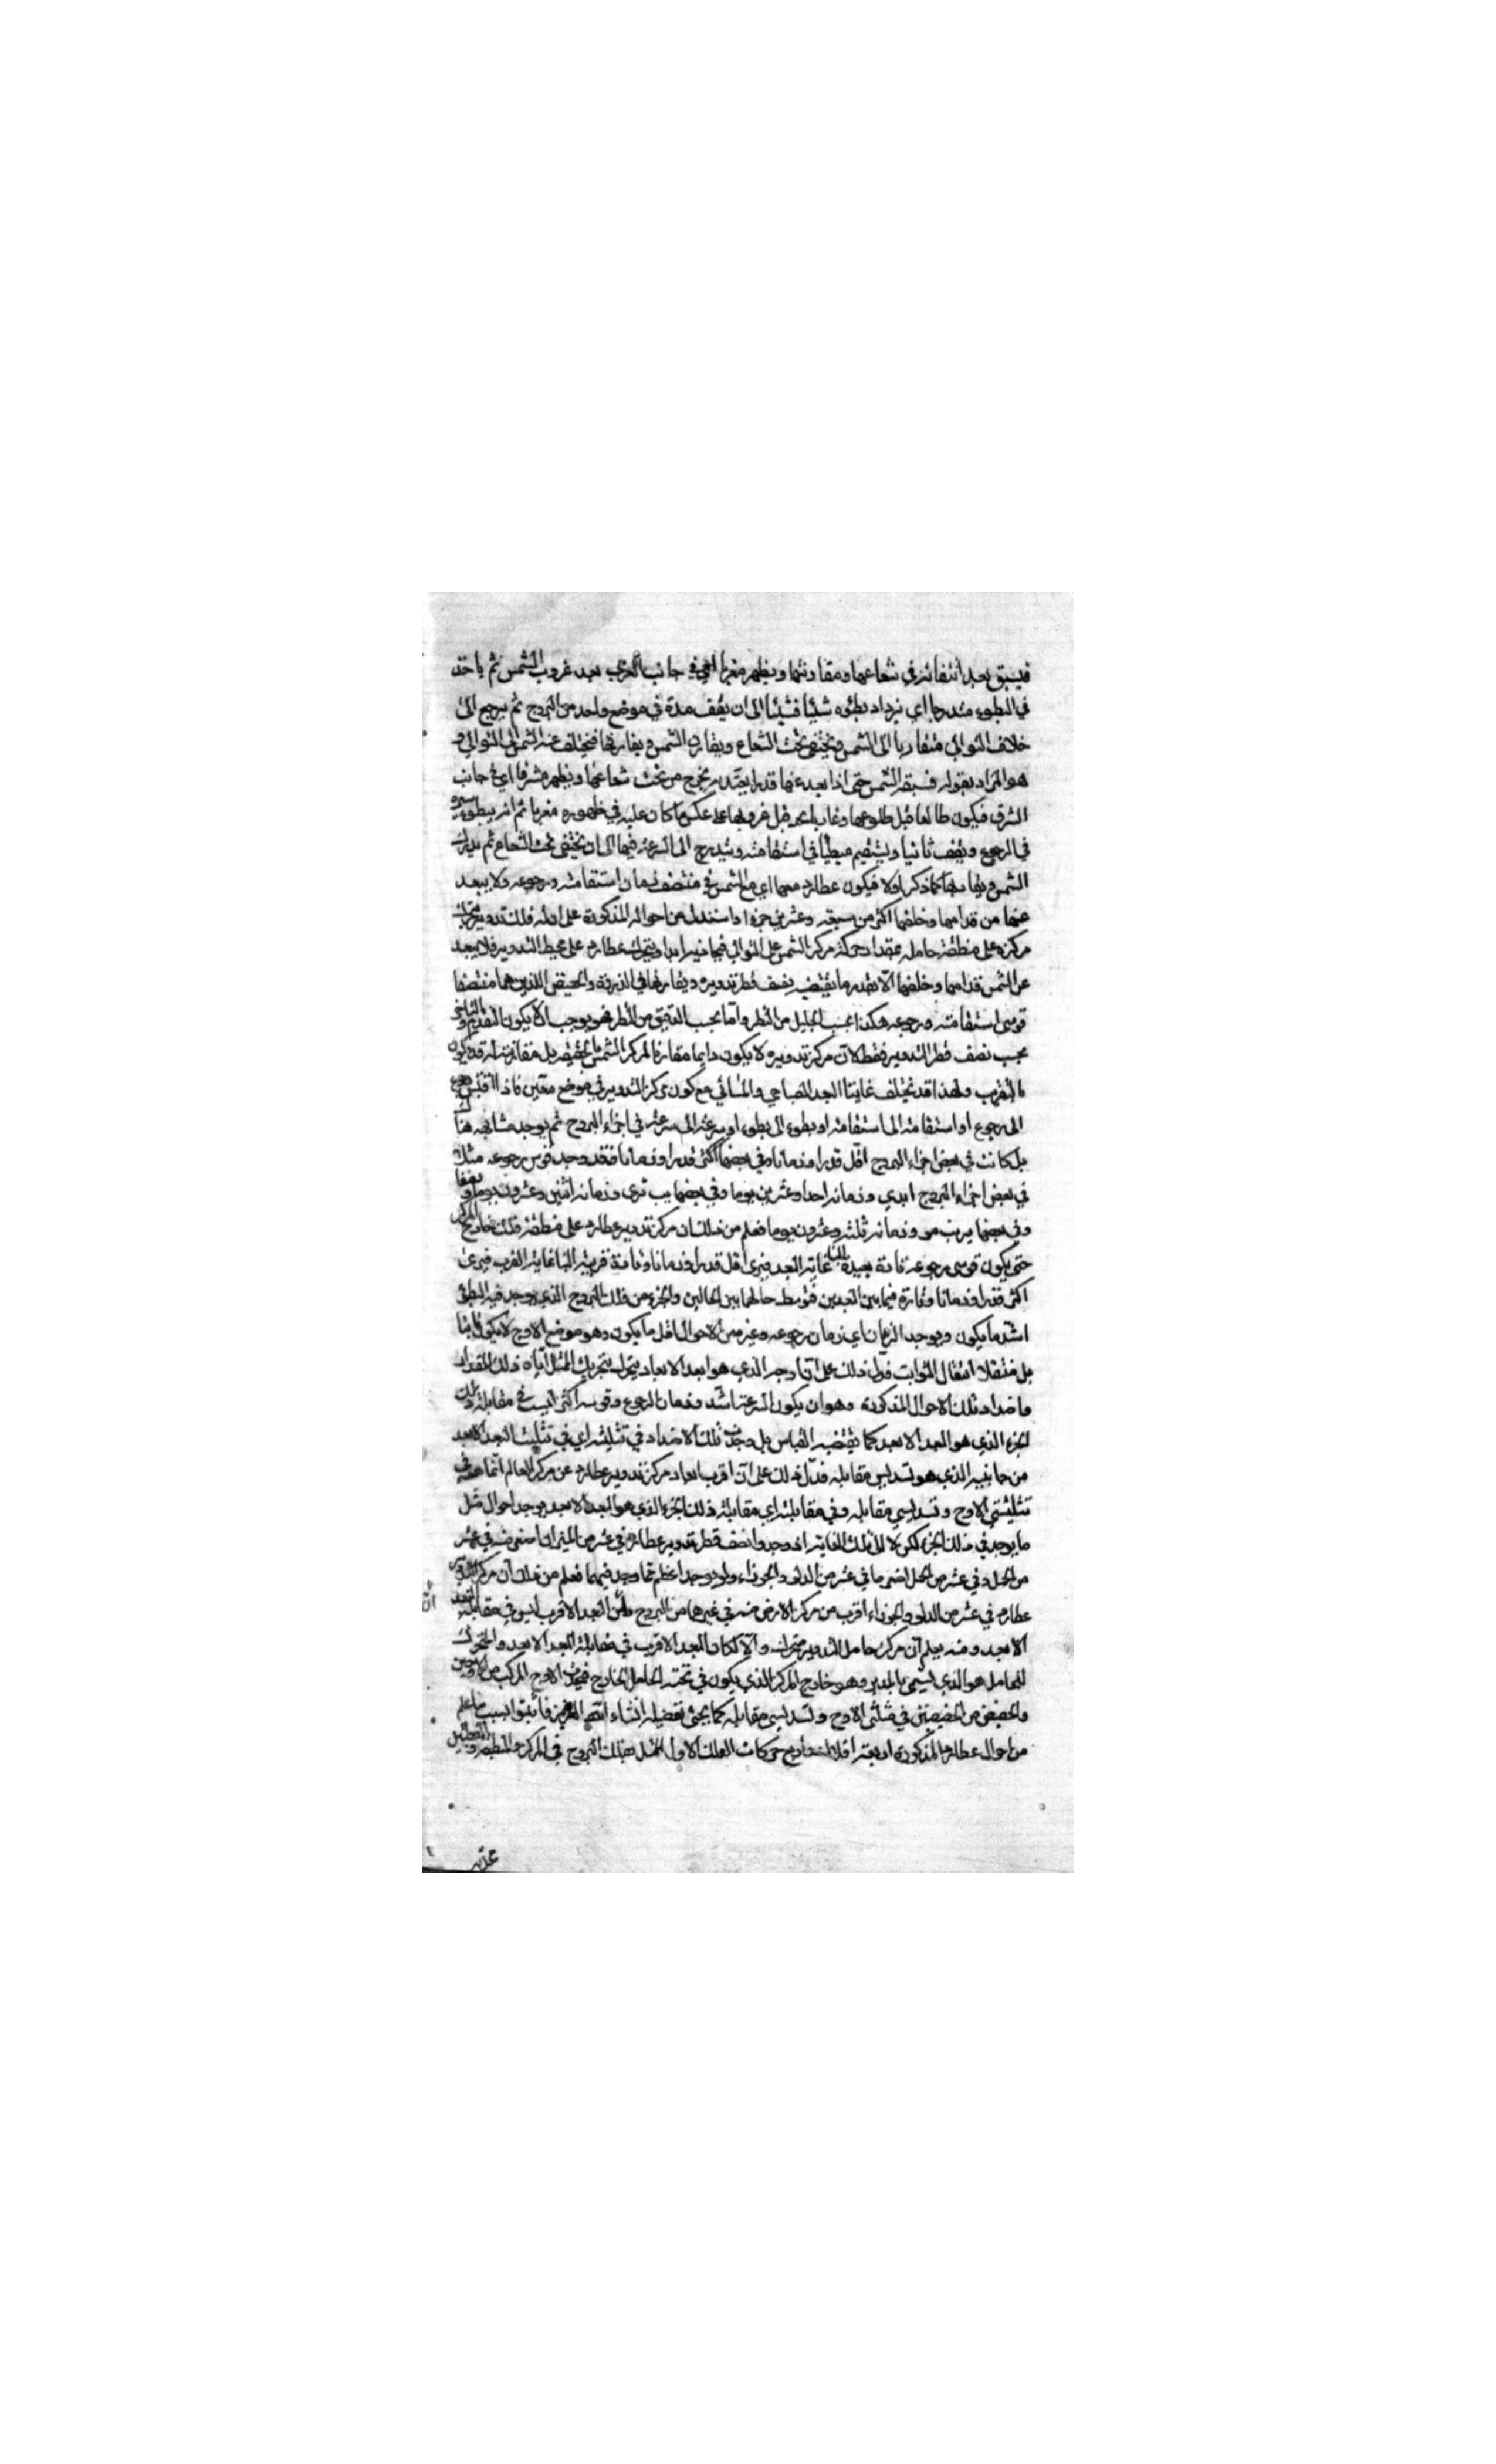 فيسبق بعد اختفائه في شعاعها ومقارنتها ويظهر مغربا اي في جانب الغرب بعد غروب الشمس ثم ياخذ
في البطوء متدرجا اي يزداد بطؤه شيئا فشيئا الى ان يقف مدة في موضع واحد من البروج ثم يرجع الى
خلاف التوالي متقاربا الى الشمس ويختفي تحت الشعاع ويقارن الشمس ويفارقها فيختلف عنه الشمس الى التوالي و
هو المراد بقوله فسبقه الشمس حتى اذا بعد عنها قدرا يعتد به يخرج من تحت شعاعها ويظهر مشرقا اي في جانب
الشرق فيكون طالعا قبل طلوعها وغاربا قبل غروبها على عكس ما كان عليه في ظهوره مغربا ثم انه يبطوء سيره
في الرجوع ويقف ثانيا ويستقيم مبطئا في استقامته ويتدرج الى السرعة فيها الى ان يختفي تحت الشعاع ثم يدرك
الشمس ويقارنها كما ذكر اولا فيكون عطارد معها اي مع الشمس في منتصف زمان استقامته ورجوعه ولا يبعد
عنها من قدامها وخلفها اكثر من سبعة وعشرين جزءا واستدل من احواله المذكورة على ان له فلك تدوير متحرك
مركزه على منطقة حامله بمقدار حركة مركز الشمس على التوالي ابدا ويتحرك عطارد على محيط التدوير فلا يبعد
عن الشمس قدامها وخلفها الا بقدر ما يقتضيه نصف قطر تدويره ويقارنها في الذروة والحضيض اللذين هما منتصفا
قوسي استقامته ورجوعه هكذا بحسب الجليل من النظر واما بحسب الدقيق من النظر فهو يوجب ان لا يكون التقدم والتاخر
بحسب نصف قطر التدوير فقط لان مركز تدويره لا يكون دايما مقارنا لمركز الشمس بالحقيقة بل مقارنته له قد يكون
بالتقريب ولهذا قد يختلف غايتا البعد الصباحي والمسائي مع كون مركز التدوير في موضع معين فاذا اقيس رجوع
الى رجوع او استقامة الى استقامة او بطوء الى بطوء او سرعة الى سرعة في اجزاء البروج لم يوجد متشابهة هناك
بل كانت في بعض اجزاء البروج اقل قدرا وزمانا وفي بعضها اكثر قدرا وزمانا فقد وجد قوس رجوعه مثلا
في بعض اجزاء البروج وزمانه احدا وعشرين يوما وفي بعضها وزمانه اثنين وعشرون يوما ونصفا
وفي بعضها وزمانه ثلثة وعشرون يوما فعلم من ذلك ان مركز تدوير عطارد على منطقة فلك خارج المركز
حتى يكون قوس رجوعه تارة بعيدة عنا غاية البعد فيرى اقل قدرا وزمانا وتارة قريبة الينا غاية القرب فيرى
اكثر قدرا وزمانا وتارة فيما بين البعدين فتوسط حالها بين الحالين والجزء من فلك البروج الذي يوجد فيه البطؤ
اشد ما يكون ويوجد الزمان اي زمان رجوعه وغيره من الاحوال اقل ما يكون وهو موضع الاوج لا يكون ثابتا
بل منتقلا انتقال الثوابت فدل ذلك على ان اوجه الذي هو ابعد الابعاد يتحرك بتحريك الممثل اياه ذلك المقدار
واضداد تلك الاحوال المذكورة وهو ان يكون السرعة اشد وزمان الرجوع وقوسه اكثر ليست في مقابلة ذلك
الجزء الذي هو البعد الابعد كما يقتضيه القياس بل وجدت تلك الاضداد في تثليثه اي في تثليث البعد الابعد
من جانبيه الذي هو تسديس مقابله فدل ذلك على ان اقرب ابعاد مركز تدوير عطارد عن مركز العالم انما هو في
تثليثي الاوج وتسديسي مقابله وفي مقابلته اي مقابلة ذلك الجزء الذي هو البعد الابعد يوجد احوال مثل
ما يوجد في ذلك الجزء لكن لا الى تلك الغاية اذ وجدوا نصف قطر تدوير عطارد في عشر من الميزان اصغر منه في عشر
من الحمل وفي عشر من الحمل اصغر مما في عشر من الدلو والجوزاء ولم يوجد اعظم مما وجد فيهما فعلم من ذلك ان مركز تدوير
عطارد في عشر من الدلو والجوزاء اقرب من مركز الارض منه في غيرها من البروج وان البعد الاقرب ليس في مقابلة البعد
الابعد ومنه يعلم ان مركز حامل التدوير متحرك والا لكان البعد الاقرب في مقابلة البعد الابعد والمتحرك
للحامل هو الذي يسمى بالمدير وهو خارج المركز الذي يكون في ثخنه الحامل الخارج الاوج المركب من الاوجين
والحضيض من الحضيضين في مثلثي الاوج وتسديسي مقابله كما يجئ تفصيله ان شاء الله العزيز فاثبتوا بسبب ما علم
من احوال عطارد المذكورة اربعة افلاك واربع حركات الفلك الاول الممثل بفلك البروج في المركز والمنطقة والقطبين